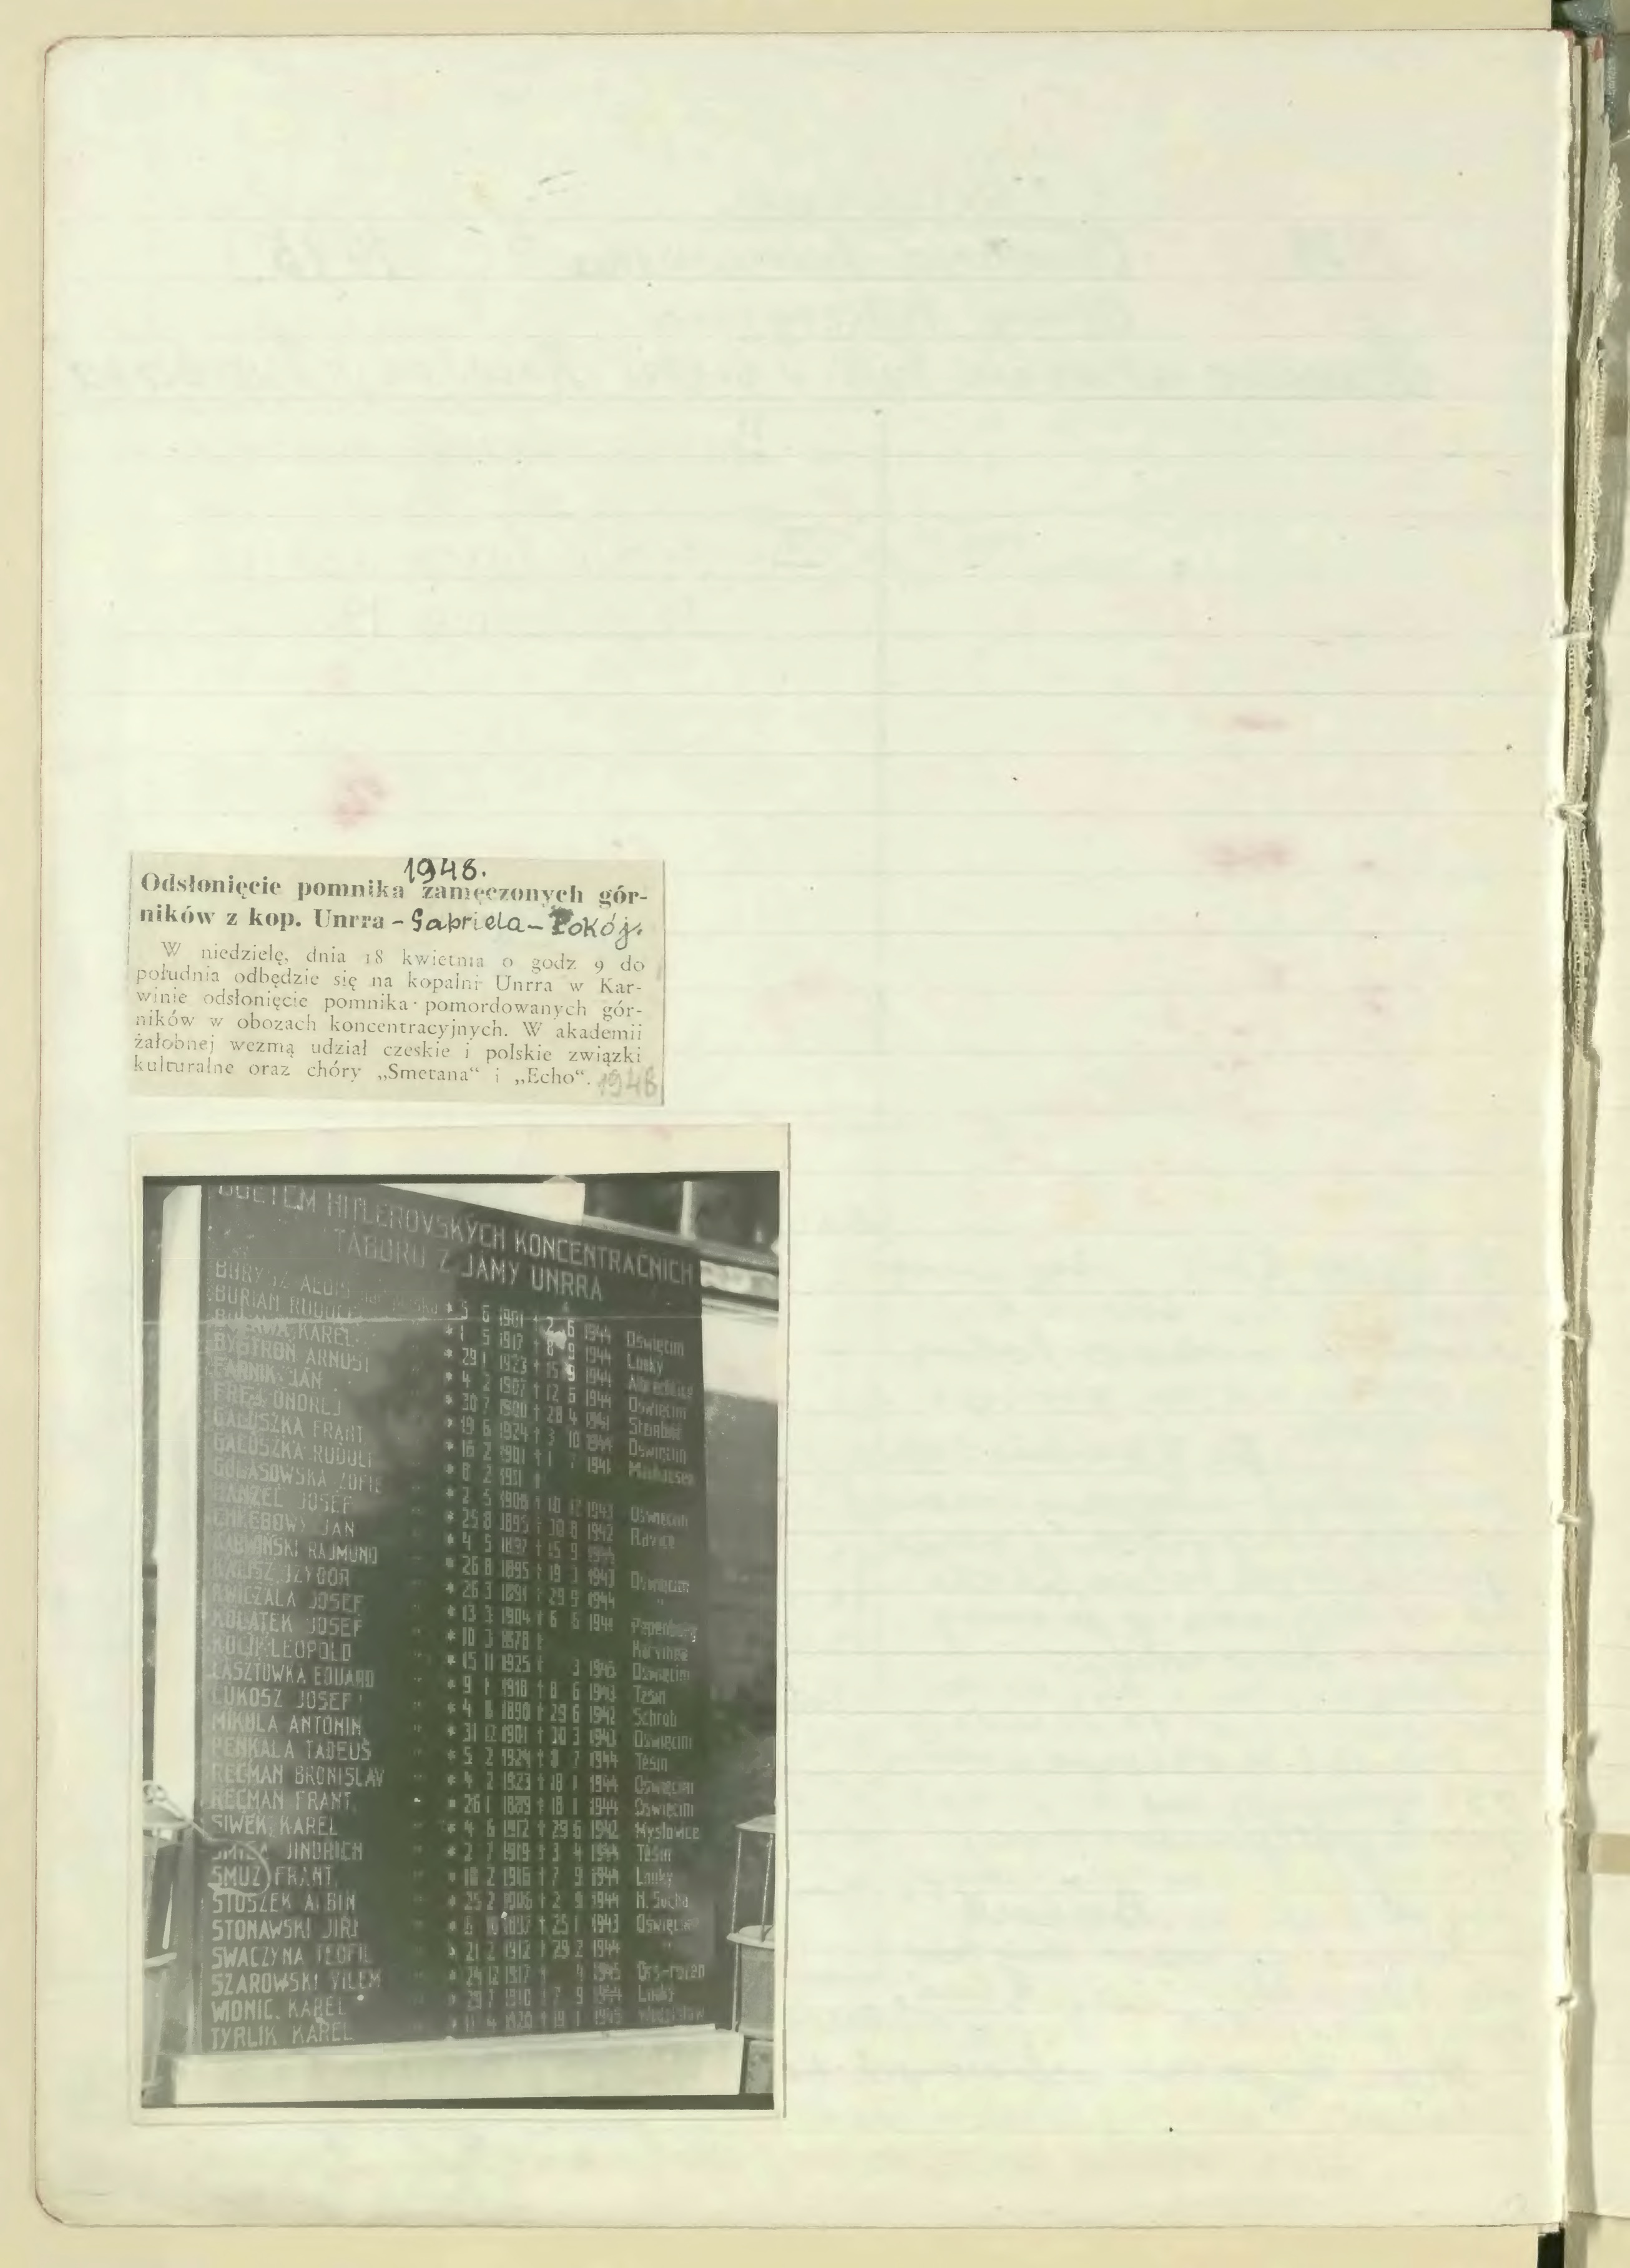 1948.
Odsłonięcie pomnika zamęczonych gór-
ników z kop. Unrra - Gabriela - Pokój.
W niedzielę, dnia 18 kwietnia o godz 9 do
południa odbędzie się na kopalni Unrra w Kar-
winie odsłonięcie pomnika pomordowanych gór-
ników w obozach koncentracyjnych. W akademii
żałobnej wezmą udział czeskie i polskie związki
kulturalne oraz chóry „Smetana“ i „Echo“.
1948
HITLEROVSKÝCH KONCENTRAČNICH
TÁBORŮ Z JAMY UNRRA
ALOIS * 5 6 1901 † 2 6 1944 Oświęcim
BURIAN RUDOLF * 1 5 1917 † 8 9 1944 Louky
KAREL * 29 1 1923 † 15 9 1944
BYSTROŇ ARNOST * 4 2 1907 † 12 6 1944 Oświęcim
FARNIK JAN * 30 7 1900 † 28 4 1941
ONDREJ * 19 6 1924 † 3 10 1944 Oświęcim
GAŁUSZKA FRANT * 16 2 1901 † 1 7 1941
GAŁUSZKA RUDOLF * 8 2 1911 †
GOŁASOWSKA ZOFIE * 2 5 1908 † 10 12 1943 Oświęcim
HANZEL JOSEF * 25 8 1895 † 30 8 1942
JAN * 4 5 1897 † 15 9 1944
RAJMUND * 26 8 1895 † 19 3 1943 Oświęcim
IZYDOR * 26 3 1891 † 29 9 1944 "
KWICZALA JOSEF * 13 3 1904 † 6 6 1944 Papenburg
KOŁATEK JOSEF * 10 3 1878 †
LEOPOLD * 15 11 1925 † 3 1945 Oświęcim
ŁASZTÓWKA EDUARD * 9 1 1918 † 8 6 1943 Těšín
LUKOSZ JOSEF * 4 8 1890 † 29 6 1942 Schrob
MIKULA ANTONIN * 31 12 1901 † 30 3 1943 Oświęcim
PENKALA TADEUŠ " * 5 2 1924 † 8 7 1944 Těšín
RECMAN BRONISLAV " * 4 2 1923 † 18 1 1944 Oświęcim
RECMAN FRANT. * 26 1 1889 † 18 1 1944 Oświęcim
SIWEK KAREL " * 4 6 1912 † 29 6 1942 Mysłowice
JINDRICH " * 2 7 1919 † 3 4 1944 Těšín
ŚMUŻ FRANT. " * 18 2 1916 † 7 9 1944 Louky
STUSZEK ALBIN " * 25 2 1906 † 2 9 1944 H. Suchá
STONAWSKI JIŘI " * 6 10 1897 † 25 1 1943 Oświęcim
SWACZYNA TEOFIL " * 21 2 1912 † 29 2 1944 "
SZAROWSKI VILEM " * 24 12 1917 † 4 1945
WIDNIC. KAREL " * 29 7 1910 † 7 9 1944 Louky
TYRLIK KAREL * 11 4 1920 † 19 1 1945